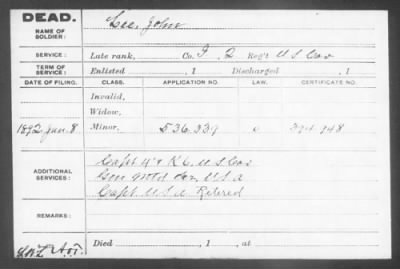 DEAD.
NAME OF SOLDIER: Lee, John
SERVICE: Late rank, Co. I, 2 Reg't U S Cav
TERM OF SERVICE: Enlisted , 1 Discharged , 1
DATE OF FILING. CLASS. APPLICATION NO. LAW. CERTIFICATE NO.
Invalid,
Widow,
1892 Jan. 8 Minor, 536.339 394.948
ADDITIONAL SERVICES:
Capt 4" & K 6. U S Cav
U S A
Capt. U S A Retired
REMARKS:
Died , 1 , at